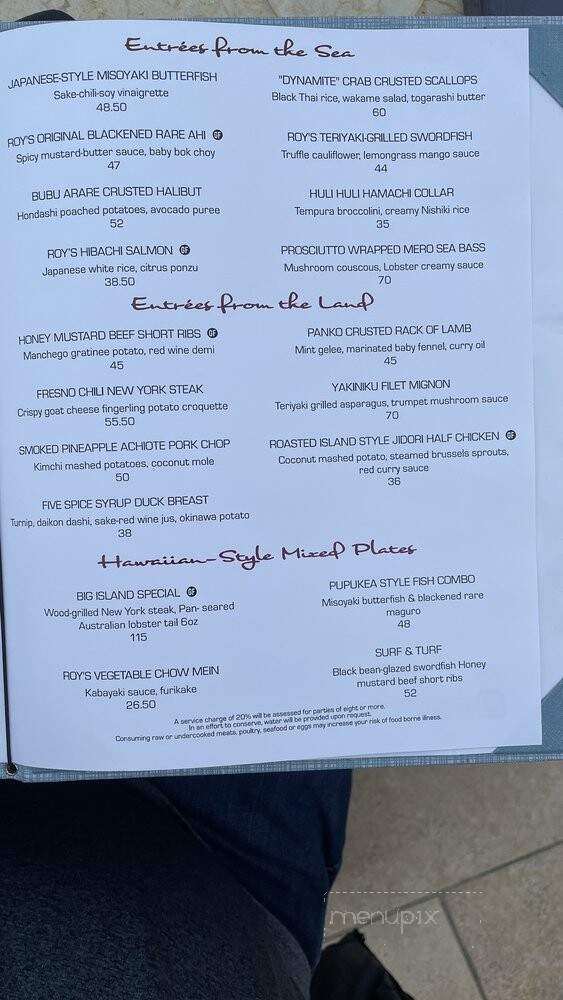 Entrées from the Sea
JAPANESE-STYLE MISOYAKI BUTTERFISH
Sake-chili-soy vinaigrette
48.50
ROY'S ORIGINAL BLACKENED RARE AHI GF
Spicy mustard-butter sauce, baby bok choy
47
BUBU ARARE CRUSTED HALIBUT
Hondashi poached potatoes, avocado puree
52
ROY'S HIBACHI SALMON GF
Japanese white rice, citrus ponzu
38.50
"DYNAMITE" CRAB CRUSTED SCALLOPS
Black Thai rice, wakame salad, togarashi butter
60
ROY'S TERIYAKI-GRILLED SWORDFISH
Truffle cauliflower, lemongrass mango sauce
44
HULI HULI HAMACHI COLLAR
Tempura broccolini, creamy Nishiki rice
35
PROSCIUTTO WRAPPED MERO SEA BASS
Mushroom couscous, Lobster creamy sauce
70
Entrées from the Land
HONEY MUSTARD BEEF SHORT RIBS GF
Manchego gratinee potato, red wine demi
45
FRESNO CHILI NEW YORK STEAK
Crispy goat cheese fingerling potato croquette
55.50
SMOKED PINEAPPLE ACHIOTE PORK CHOP
Kimchi mashed potatoes, coconut mole
50
FIVE SPICE SYRUP DUCK BREAST
Turnip, daikon dashi, sake-red wine jus, okinawa potato
38
PANKO CRUSTED RACK OF LAMB
Mint gelee, marinated baby fennel, curry oil
45
YAKINIKU FILET MIGNON
Teriyaki grilled asparagus, trumpet mushroom sauce
70
ROASTED ISLAND STYLE JIDORI HALF CHICKEN GF
Coconut mashed potato, steamed brussels sprouts,
red curry sauce
36
Hawaiian-Style Mixed Plates
BIG ISLAND SPECIAL GF
Wood-grilled New York steak, Pan- seared
Australian lobster tail 6oz
115
ROY'S VEGETABLE CHOW MEIN
Kabayaki sauce, furikake
26.50
PUPUKEA STYLE FISH COMBO
Misoyaki butterfish & blackened rare
maguro
48
SURF & TURF
Black bean-glazed swordfish Honey
mustard beef short ribs
52
A service charge of 20% will be assessed for parties of eight or more.
In an effort to conserve, water will be provided upon request.
Consuming raw or undercooked meats, poultry, seafood or eggs may increase your risk of food borne illness.
menupix